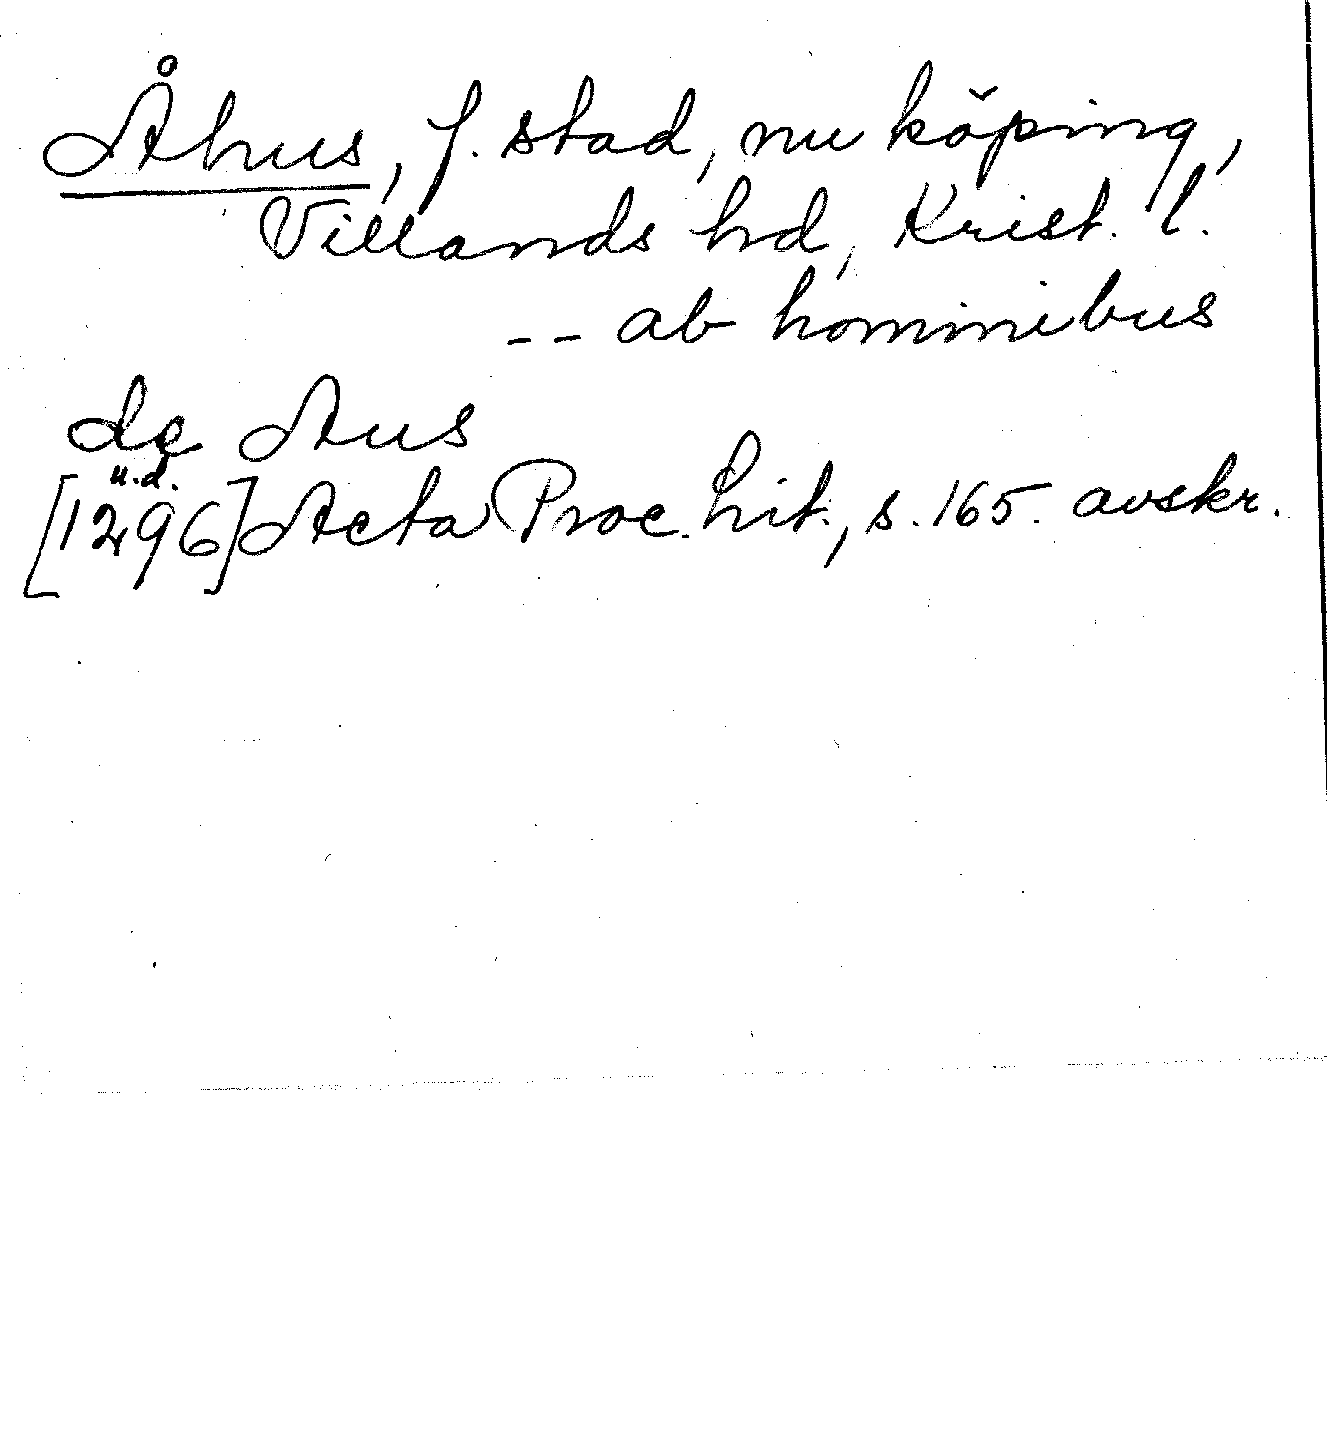 Åhus, f. stad, nu köping,
Villands hd, Krist. l.
-- ab hominibus
de Aus
u.d.
[1296] Acta Proc. Lit., s. 165. avskr.